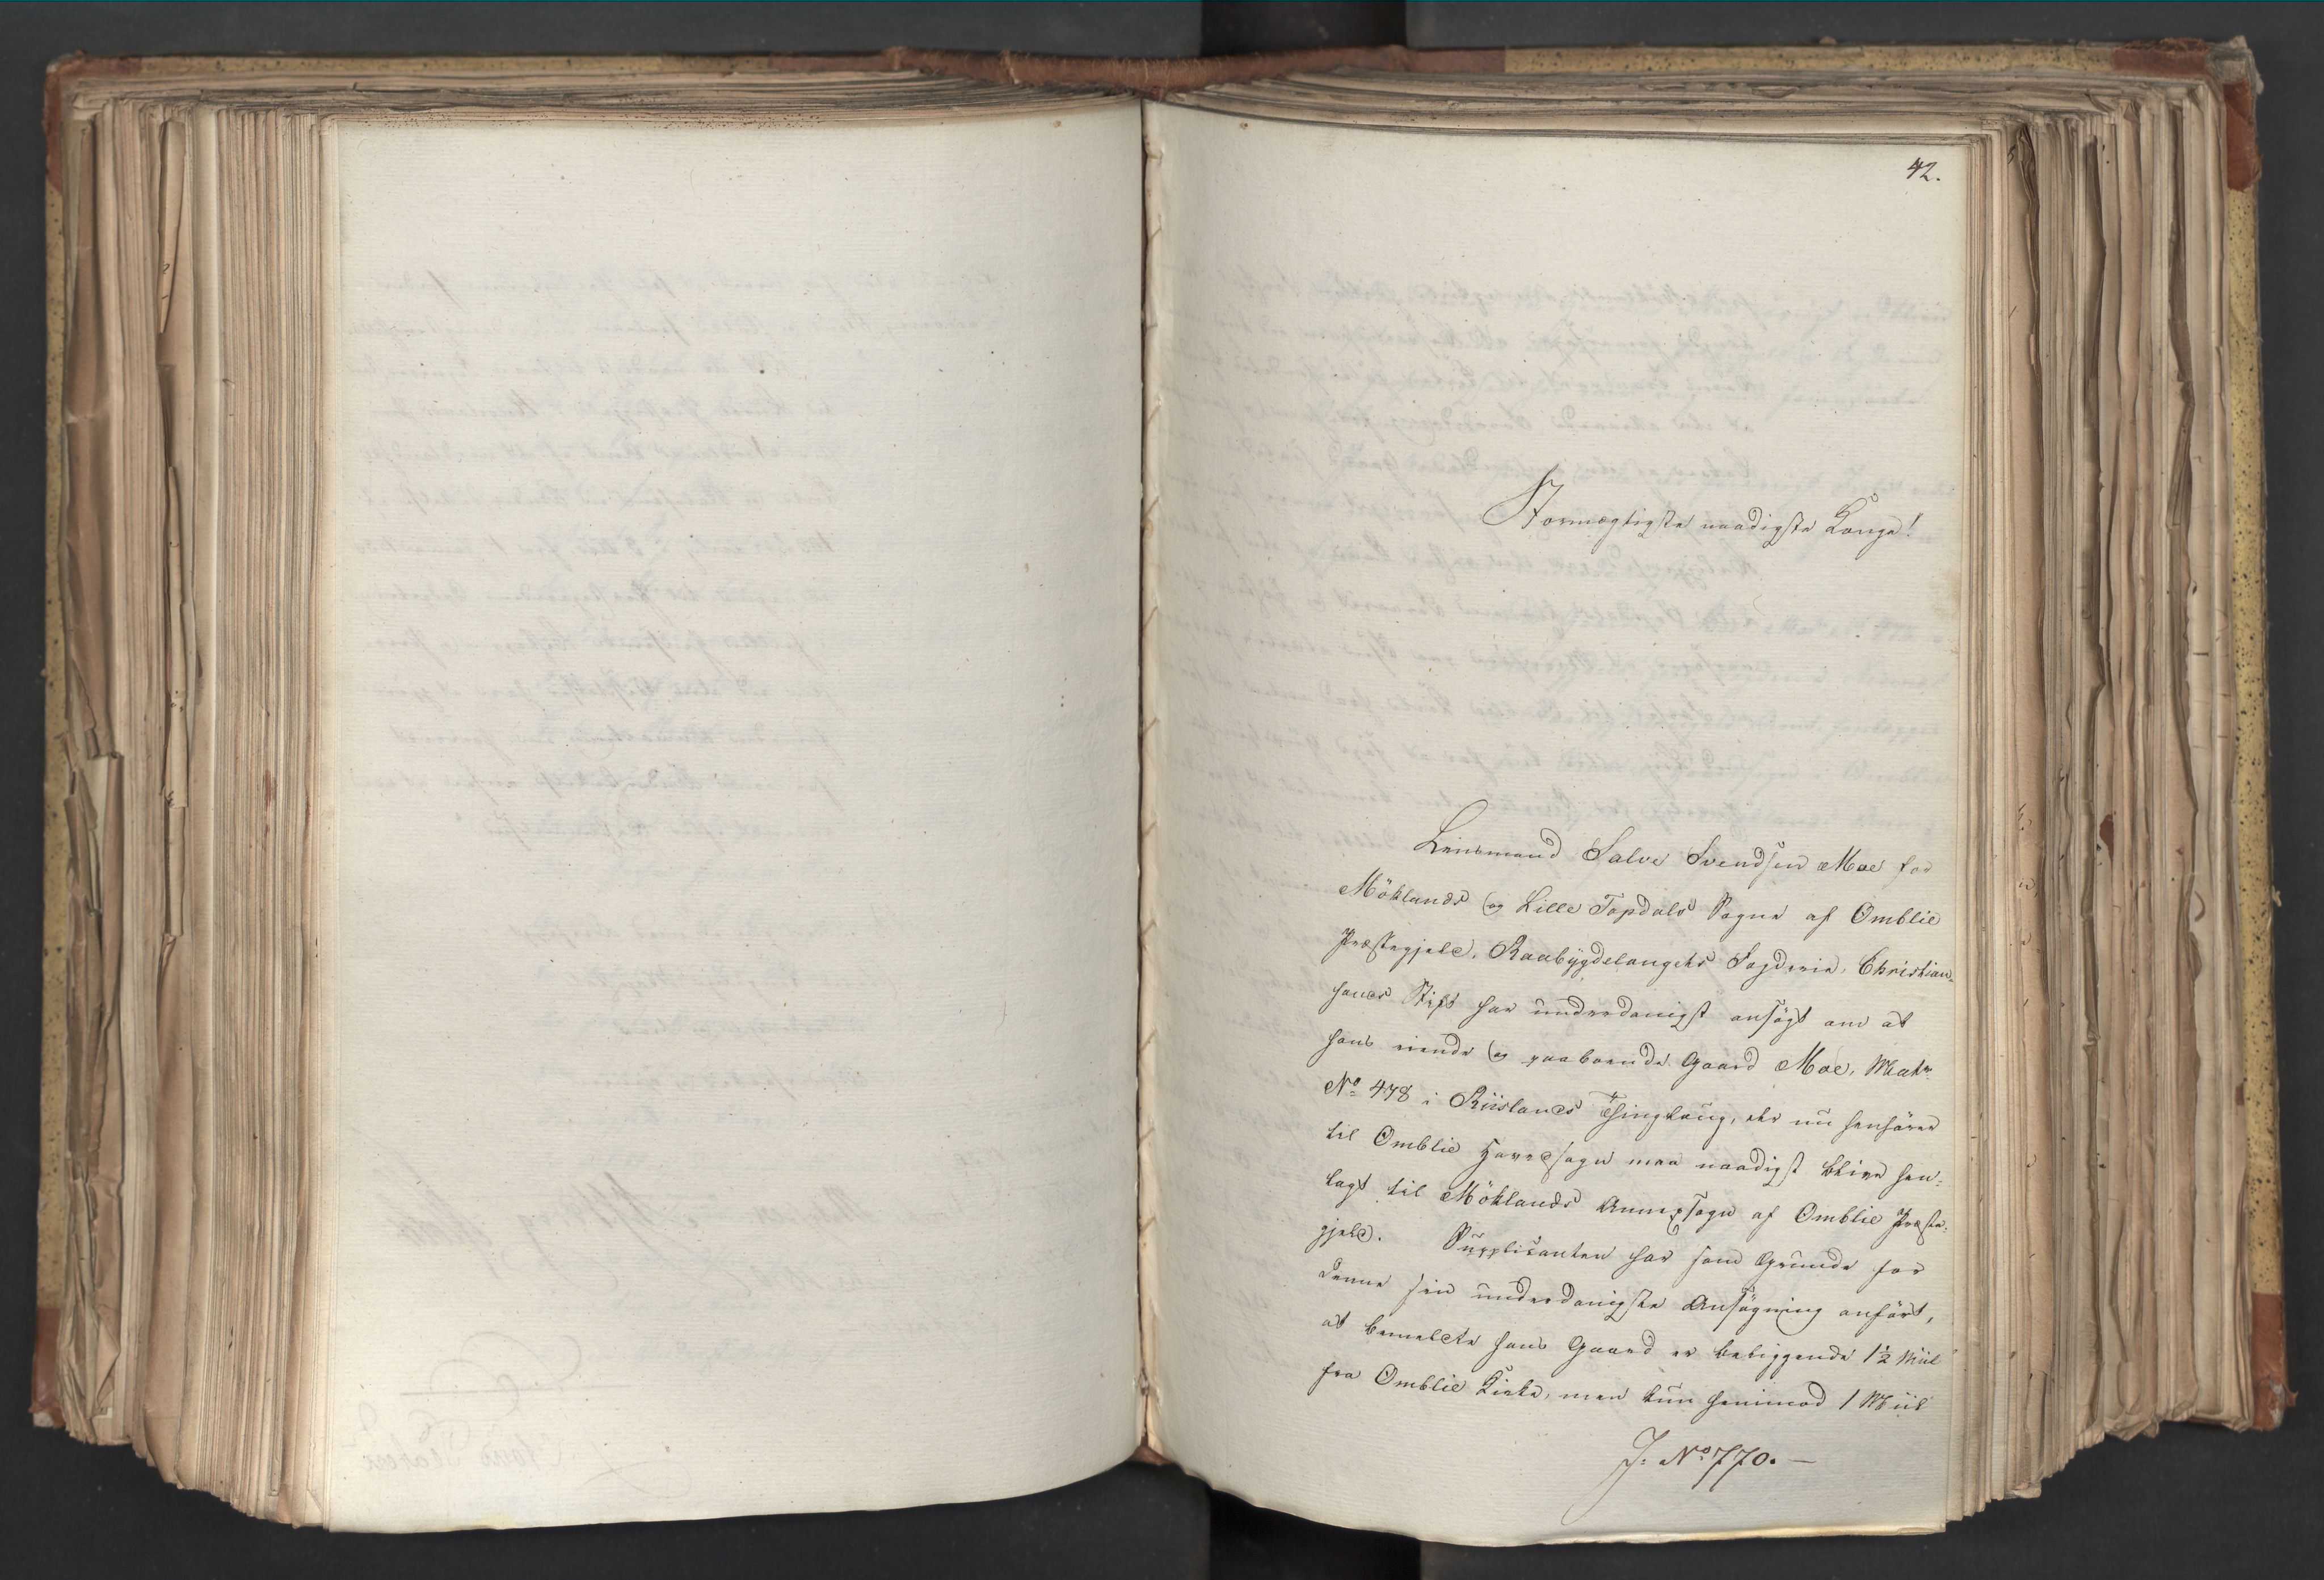 42.
Stormægtigste naadigste Konge!
Lensmand Salve Svendsen Moe for
Möklands og Lille Topdals Sogne af Omblie
Præstegjeld, Raabÿgdelangets Fogderie, Christian-
sands Stift har underdanigst ansögt om at
hans eiende og paaboende Gaard Moe, Matr
No 478 i Riislands Thinglaug, der nu henhörer
til Omblie Hovedsogn maa naadigst blive hen-
lagt til Möklands Annexsogn af Omblie Præste-
gjeld. Supplicanten har som Grunde for
denne sin underdanigste Ansögning anfört,
at bemeldte hans Gaard er beliggende 1½ Miil
fra Omblie Kirke, men kun henimod 1 Miil
J: No 770. —